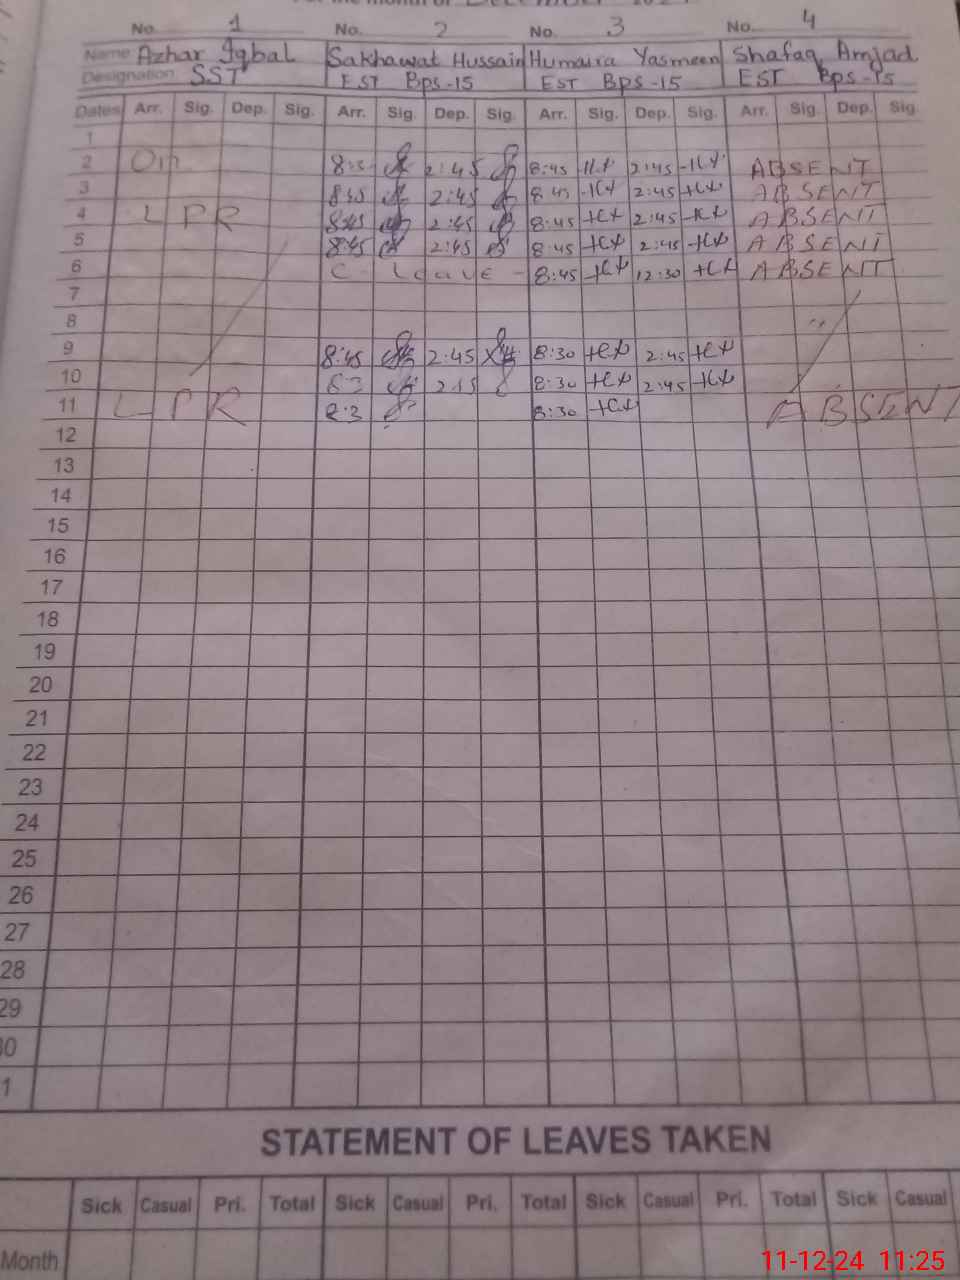 No. 1 No. 2 No. 3 No. 4
Name Azhar Iqbal Sakhawat Hussain Humaira Yasmeen Shafaq Amjad
Designation SST EST Bps-15 EST Bps-15 EST Bps-15
Dates Arr. Sig. Dep. Sig. Arr. Sig. Dep. Sig. Arr. Sig. Dep. Sig. Arr. Sig. Dep. Sig.
1
2 On 8:3 2:45 8:45 2:45 ABSENT
3 8:45 2:45 8:45 2:45 ABSENT
4 LPR 8:45 2:45 8:45 2:45 ABSENT
5 8:45 2:45 8:45 2:45 ABSENT
6 C-leave- 8:45 12:30 ABSENT
7
8
9 8:45 2:45 8:30 2:45
10 2:45 8:30 2:45
11 LPR 8:3 8:30 ABSENT
12
13
14
15
16
17
18
19
20
21
22
23
24
25
26
27
28
29
30
1
STATEMENT OF LEAVES TAKEN
Sick Casual Pri. Total Sick Casual Pri. Total Sick Casual Pri. Total Sick Casual
Month
11-12-24 11:25